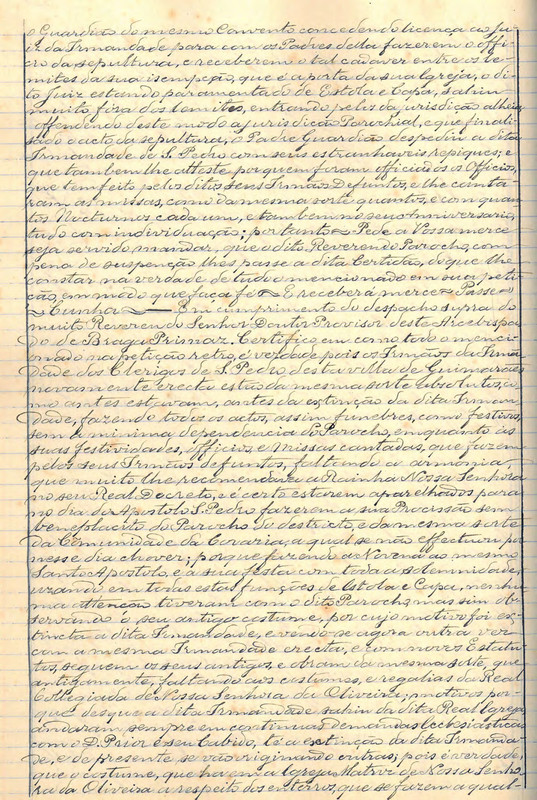 o Guardião do mesmo Convento concedendo licença ao Ju-
iz da Irmandade para com os Padres della fazerem o offi-
cio da sepultura, e receberem o tal cadaver entre os le-
mites da sua isempção, que é a porta da sua Igreja, o di-
to Juiz estando paramentado de Estola e Capa, sahiu
muito fora dos lemites, entrando pelos da jurisdição alheia
offendendo deste modo a jurisdição Parochial, e que finali-
sado o acto da sepultura, o Padre Guardião despediu a dita
Irmandade de S. Pedro com seus estranhaveis repiques; e
que tambem lhe atteste por quem foram officiados os Officios,
que tem feito pelos ditos seus Irmãos Defuntos, e lhe canta-
ram as missas, como da mesma sorte quantos, e com quan-
tos Nocturnos cada um, e tambem no seu Anniversario,
tudo com individuação; portanto = Pede a Vossa merce
seja servido mandar, que o dito Reverendo Parocho, com
pena de suspenção lhes passe a dita Certidão, do que lhe
constar na verdade de tudo o mencionado em sua peti-
ção, em modo que faça fé = E receberá merce = Passe =
= Cunha = Em cumprimento do despacho supra do
muito Reverendo Senhor Doutor Provisor deste Arcebispa-
do de Braga Primaz. Certifico em como todo o menci-
onado na petição retro, é verdade pois os Irmãos da Irman-
dade dos Clerigos de S. Pedro, desta villa de Guimarães
novamente erecta estão da mesma sorte absolutos, co-
mo antes estavam, antes da extinção da dita Irman-
dade, fazendo todos os actos, assim funebres, como festivos,
sem a minima dependencia do Parocho, em quanto ás
suas festividades, officios, e Missas cantadas, que fazem
pelos seus Irmãos defuntos, faltando a armonia,
que muito lhe recomendava a Rainha Nossa Senhora
no seu Real Decreto, e é certo estarem aparelhados para
no dia do Apostolo S. Pedro fazerem a sua Procissão sem
beneplacito do Parocho do destricto, e da mesma sorte
da Comunidade da Coraria, a qual se não effectuou por
nesse dia chover; porque fazendo a Novena ao mesmo
Santo Apostolo, e a sua festa com toda a solemnidade,
uzando em todas estas funções de Estola e Capa, nenhu-
ma attenção tiveram com o dito Parocho, mas sim ob-
servando o seu antigo costume, por cujo motivo foi ex-
tincta a dita Irmandade, e vendo-se agora outra vez
com a mesma Irmandade erecta, e com novos Estatu-
tos, seguem os seus antigos, e obram da mesma sorte, que
antigamente, faltando aos costumes, e regalias da Real
Collegiada de Nossa Senhora da Oliveira, motivos por-
que desque a dita Irmandade sahiu da dita Real Igreja
andaram sempre em continuas demandas ecclesiasticas
com o D. Prior e seu Cabido, té a extinção da dita Irmanda-
de, e do presente se vão originando outras; pois é verdade,
que o costume, que ha em a Igreja Matriz de Nossa Senho-
ra da Oliveira a respeito dos enterros, que se fazem a qual-